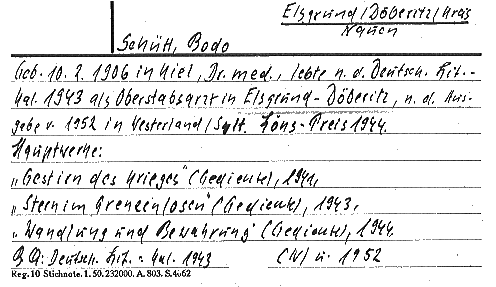 Elsgrund/Döberitz/Kreis
Nauen
Schütt, Bodo
Geb. 10. 2. 1906 in Kiel, Dr. med., lebte n. d. Deutsch. Lit.-
Kal. 1943 als Oberstabsarzt in Elsgrund-Döberitz, n. d. Aus-
gabe v. 1952 in Westerland/Sylt. Löns-Preis 1944.
Hauptwerke:
"Gestirn des Krieges" (Gedichte), 1941,
"Stern im Grenzenlosen" (Gedichte), 1943,
"Wandlung und Bewahrung" (Gedichte), 1944.
Deutsch. Lit.-Kal. 1943 (N) u. 1952
Reg. 10 Stichnote. 1. 50. 232000. A. 803. S. 4062